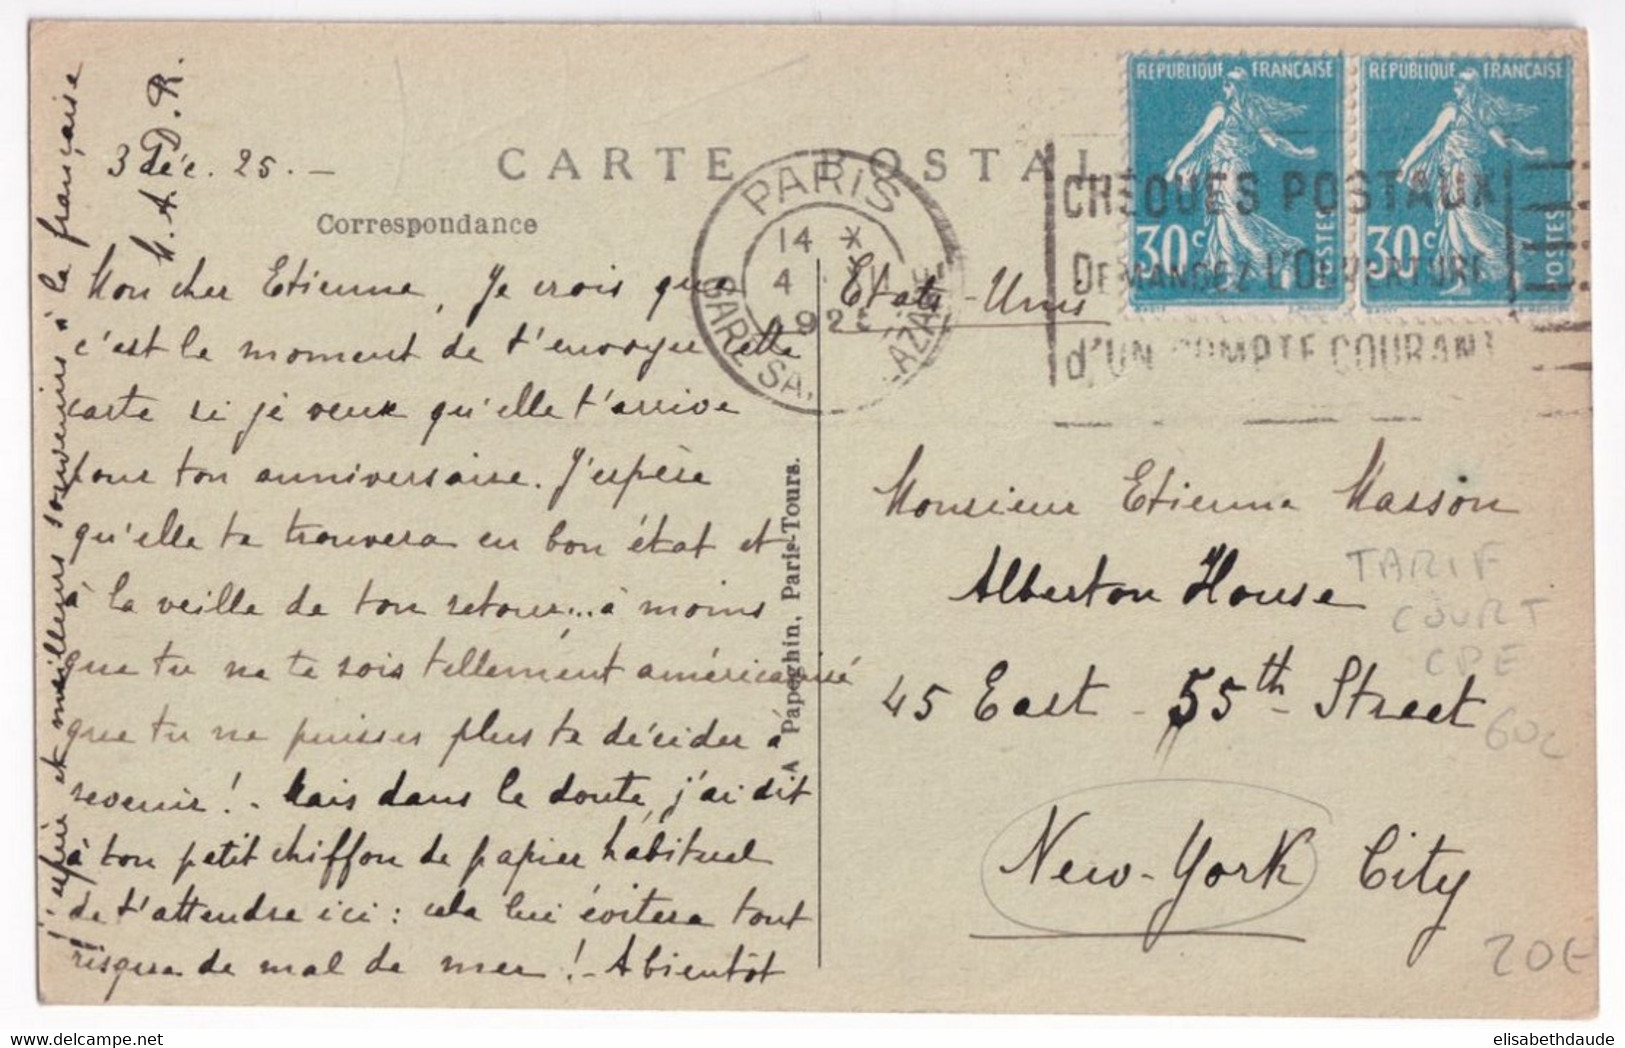 CARTE POSTAL
3 déc. 25. —
Correspondance
Mon cher Etienne, Je crois que
c'est le moment de t'envoyer cette
carte si je veux qu'elle t'arrive
pour ton anniversaire. J'espère
qu'elle te trouvera en bon état et
à la veille de ton retour... à moins
que tu ne te sois tellement américanisé
que tu ne puisses plus te décider à
revenir ! - Mais dans le doute, j'ai dit
à ton petit chiffon de papier habituel
de t'attendre ici : cela lui évitera tout
risque de mal de mer ! - A bientôt
j'espère et meilleurs souvenirs à la française
M. A. D. R.
A Papeghin, Paris-Tours.
PARIS
14 *
4 XII
1925
GARE ST LAZARE
CHEQUES POSTAUX
DEMANDEZ L'OUVERTURE
d'UN COMPTE COURANT
REPUBLIQUE FRANÇAISE
30c
POSTES
REPUBLIQUE FRANÇAISE
30c
POSTES
Etats-Unis
Monsieur Etienne Masson
Alberton House
45 East - 55th - Street
New-York City
TARIF
COURT
CPE
60c
20€
elisabethdaude